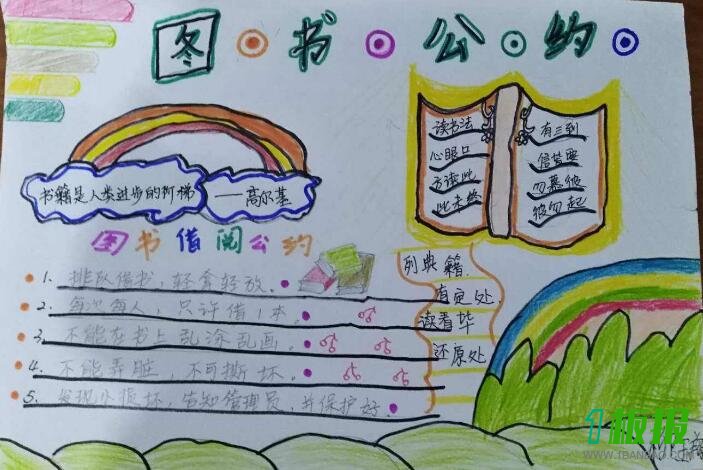 图书公约
书籍是人类进步的阶梯
——高尔基
读书法
心眼口
方读此
此未终
有三到
信皆要
勿慕彼
彼勿起
图书借阅公约
1. 排队借书，轻拿轻放。
2. 每次每人，只许借1本。
3. 不能在书上乱涂乱画。
4. 不能弄脏，不可撕坏。
5. 发现小损坏，告知管理员，并保护好
列典籍
有定处
读看毕
还原处
1板报
WWW.1BANBAO.COM